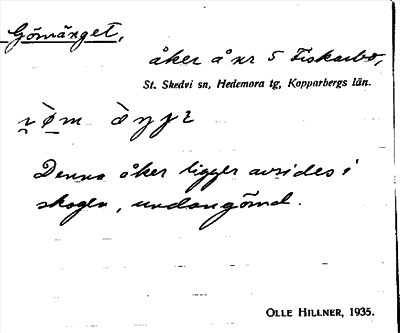 Gömänget,
åker å nr 5 Fiskarbo,
St. Skedvi sn, Hedemora tg, Kopparbergs län.
Denna åker ligger avsides i
skogen, undangömd.
OLLE HILLNER, 1935.